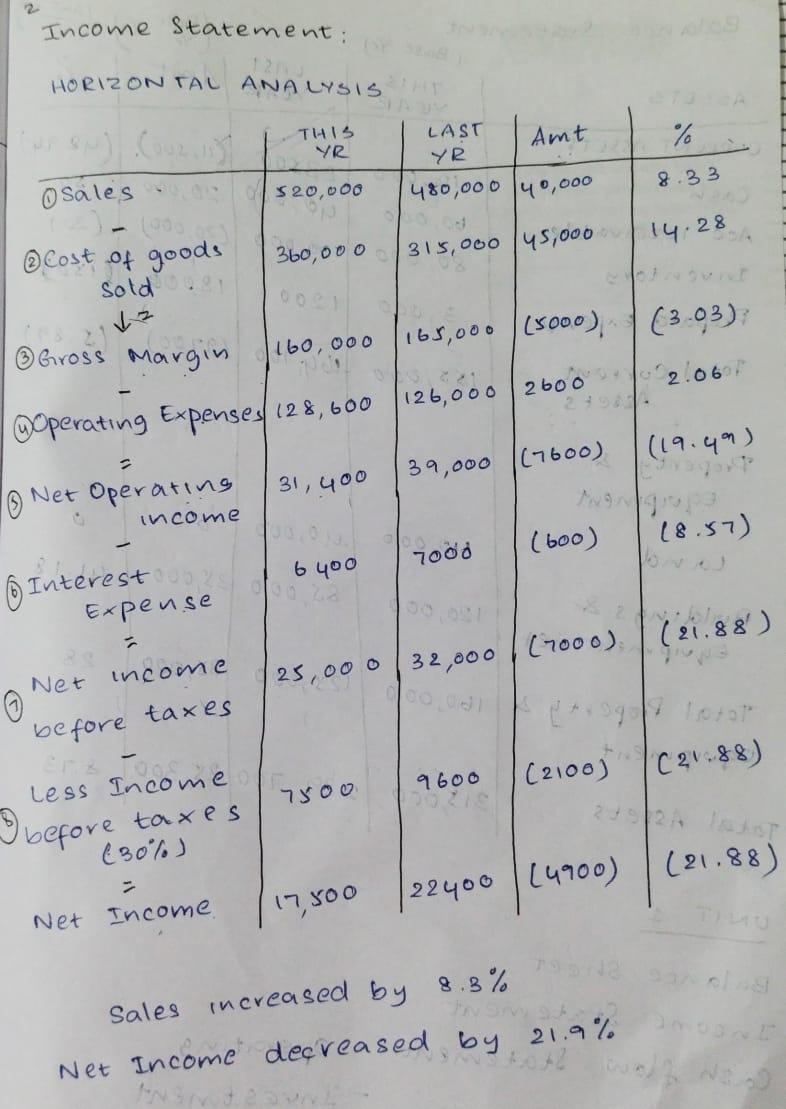 2
Income Statement:
HORIZONTAL ANALYSIS
THIS YR LAST YR Amt %
① Sales 520,000 480,000 40,000 8.33
-
② Cost of goods sold 360,000 315,000 45,000 14.28
=
③ Gross Margin 160,000 165,000 (5000) (3.03)
-
④ Operating Expenses 128,600 126,000 2600 2.06
=
⑤ Net Operating income 31,400 39,000 (7600) (19.49)
-
⑥ Interest Expense 6400 7000 (600) (8.57)
=
⑦ Net income before taxes 25,000 32,000 (7000) (21.88)
-
⑧ Less Income before taxes (30%) 7500 9600 (2100) (21.88)
=
Net Income 17,500 22400 (4900) (21.88)
Sales increased by 8.3%
Net Income decreased by 21.9%